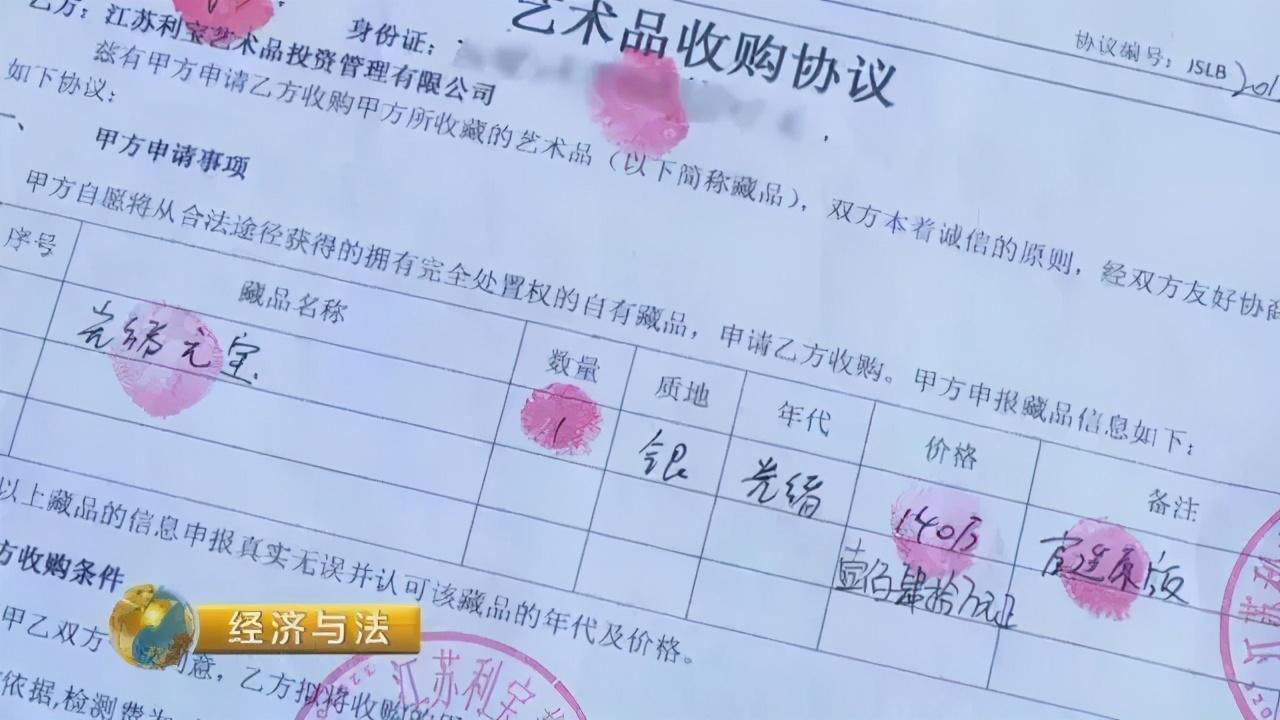 艺术品收购协议
协议编号：JSLB201
乙方：江苏利宝艺术品投资管理有限公司
身份证：
兹有甲方申请乙方收购甲方所收藏的艺术品（以下简称藏品），双方本着诚信的原则，经双方友好协商
如下协议：
一、 甲方申请事项
甲方自愿将从合法途径获得的拥有完全处置权的自有藏品，申请乙方收购。甲方申报藏品信息如下：
序号 藏品名称 数量 质地 年代 价格 备注
光绪元宝 1 银 光绪 140万
壹佰肆拾万元正
以上藏品的信息申报真实无误并认可该藏品的年代及价格。
方收购条件
甲乙双方 意，乙方拟将收购的
依据,检测费为
江苏利宝
经济与法